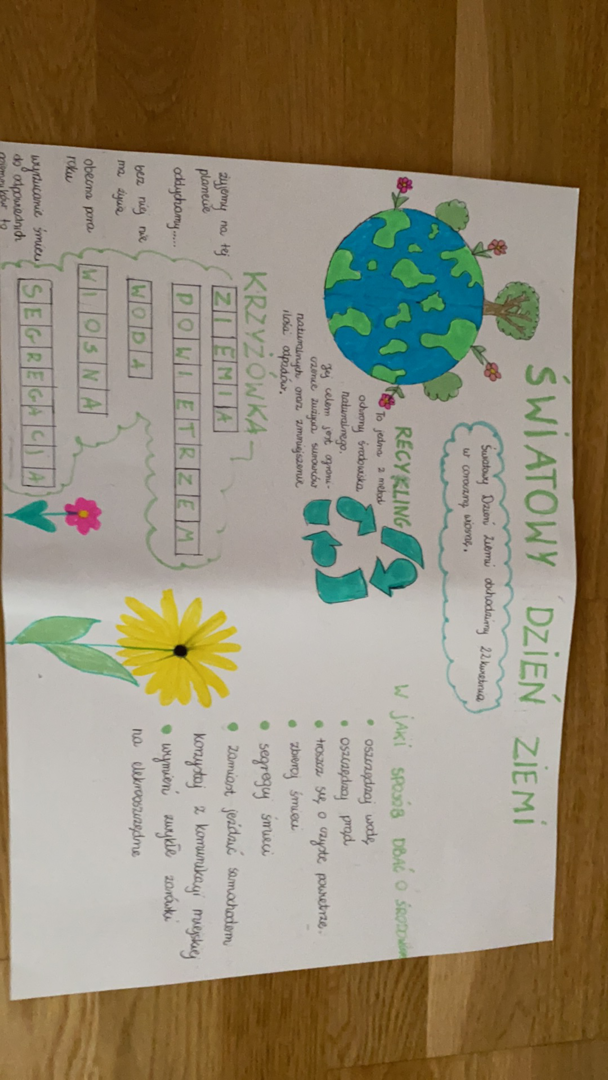 ŚWIATOWY DZIEŃ ZIEMI
Światowy Dzień Ziemi obchodzimy 22 kwietnia
w coroczną wiosnę.
RECYKLING
To jedna z metod
ochrony środowiska
naturalnego.
Jej celem jest ograni-
czenie zużycia surowców
naturalnych oraz zmniejszenie
ilości odpadów.
KRZYŻÓWKA
żyjemy na tej
planecie
ZIEMIA
oddychamy.....
POWIETRZEM
bez niej nie
ma życia
WODA
obecna pora
roku
WIOSNA
wyrzucanie śmieci
do odpowiednich
to
SEGREGACJA
W JAKI SPOSÓB DBAĆ O
oszczędzaj wodę
oszczędzaj prąd
troszcz się o czyste powietrze.
zbieraj śmieci
segreguj śmieci
zamiast jeździć samochodem
korzystaj z komunikacji miejskiej
wymień zwykłe żarówki
na elektrooszczędne